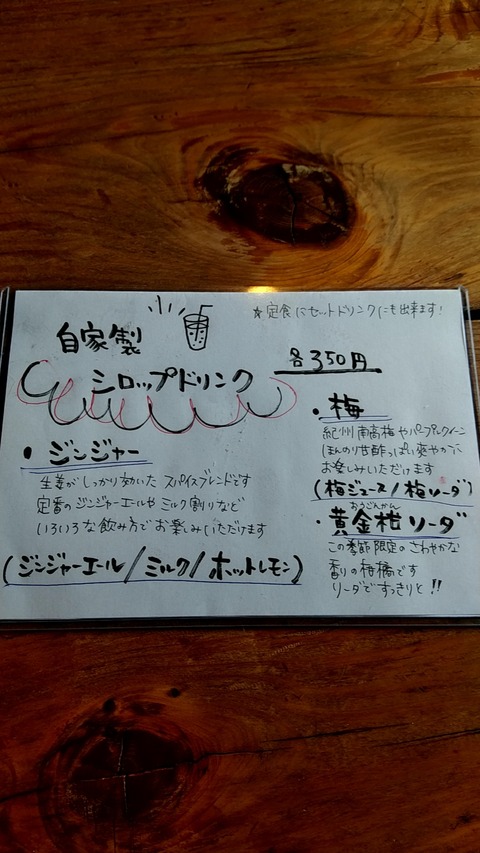 ☆定食にセットドリンクにも出来ます!
自家製
シロップドリンク
各350円
・ジンジャー
生姜がしっかり効いたスパイスブレンドです
定番のジンジャーエールやミルク割りなど
いろいろな飲み方でお楽しみいただけます
(ジンジャーエール/ミルク/ホットレモン)
・梅
紀州南高梅やパープルクィーン
ほんのり甘酸っぱい爽やかで
お楽しみいただけます
(梅ジュース/梅ソーダ)
おうごんかん
・黄金柑ソーダ
この季節限定のさわやかな
香りの柑橘です
ソーダですっきりと!!